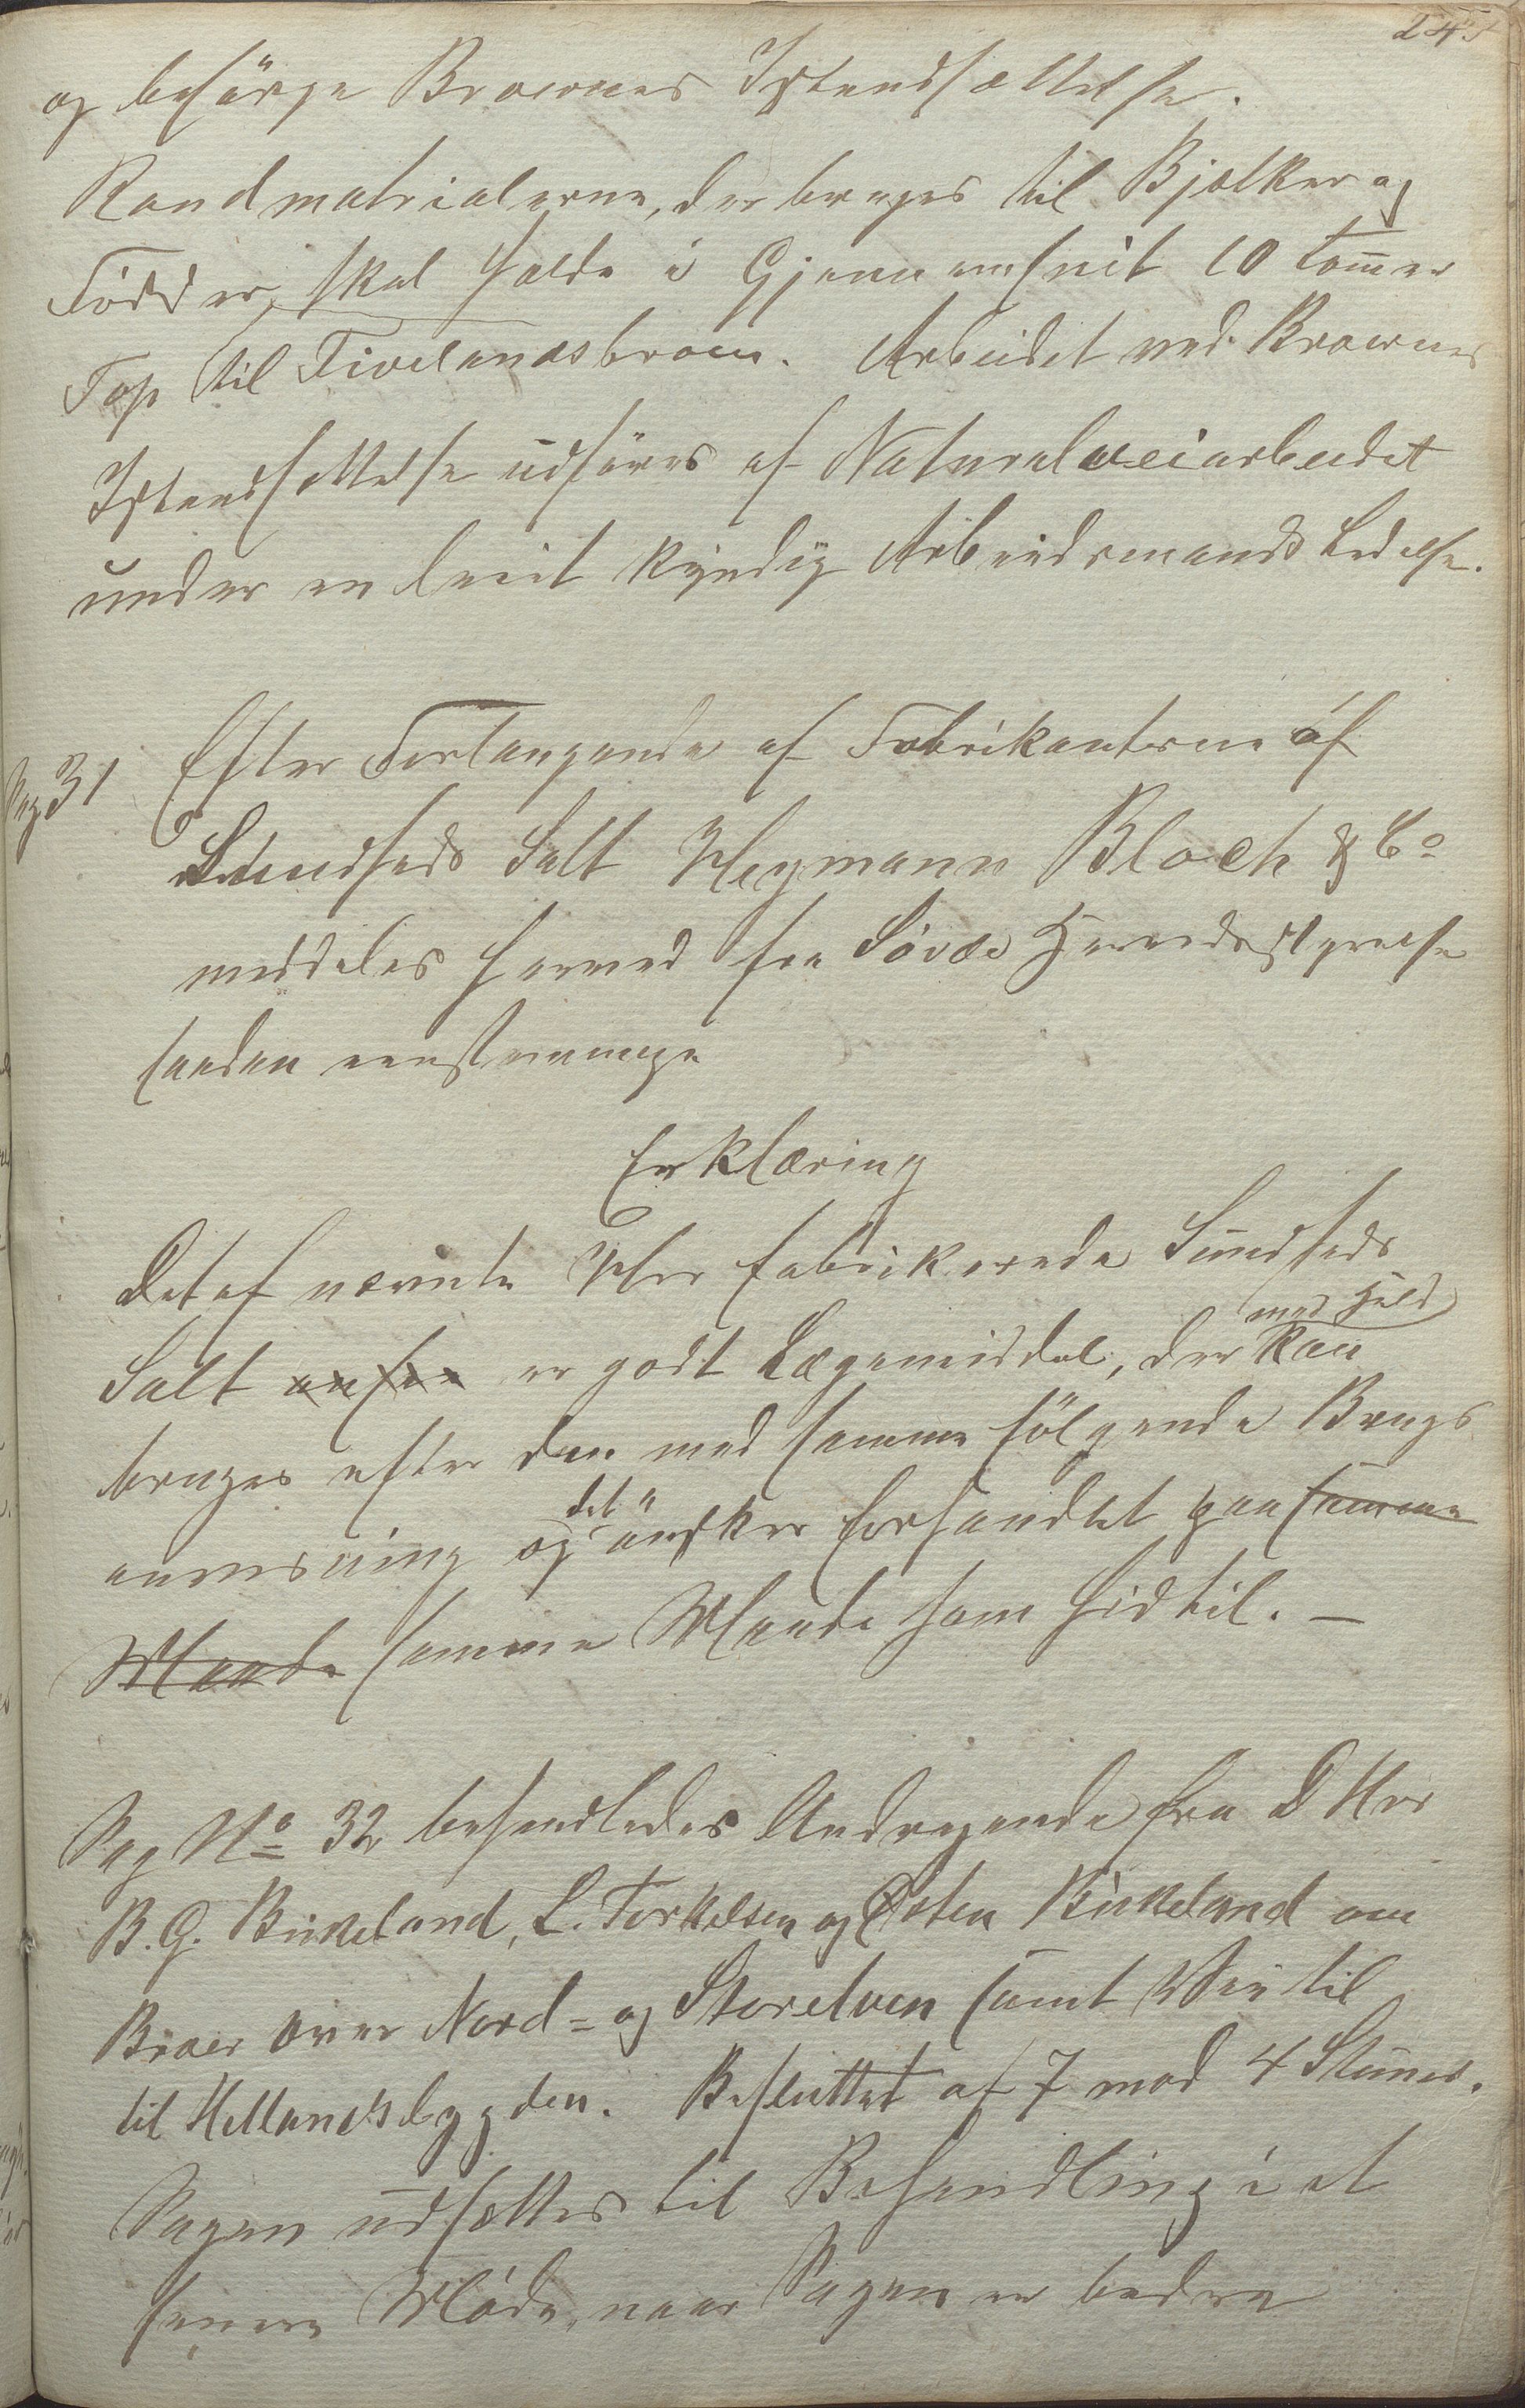 245
og besörge Broernes Istandsættelse.
Randmatrialerne, der bruges til Bjælker og
Födder, skal holde i Gjennemsnit 10 tommer
Top til Fivelandsbroen. Arbeidet ved Broernes
Istandsættelse udföres af Naturalveiarbeidet
under en leiet kyndig Arbeidsmands Ledelse.
Sag 31 Efter Forlangende af Fabrikanterne af
Sundheds Salt Heymann Bloch & Co
meddeles herved fra Søvde Herredsstyrelse
saadan eenstemmige
Erklæring
Det af nævnte Hrr fabrikerede Sundheds
med Held
Salt er godt Lægemiddel, der kan
bruges efter den med samme fölgende Brugs
det
anvisning og önskes forhandlet paa samme
Maade samme Maade som hidtil. —
Sag No 32 behandledes Andragende fra D Hrr
B. G. Birkeland, L. Torkelsen og Østen Birkeland om
Broer over Nord- og Storelven samt Vei til
til Hellandsbygden. Besluttet af 7 mod 4 Stemmer.
Sagen udsættes til Behandling i et
senere Møde, naar Sagen er bedre